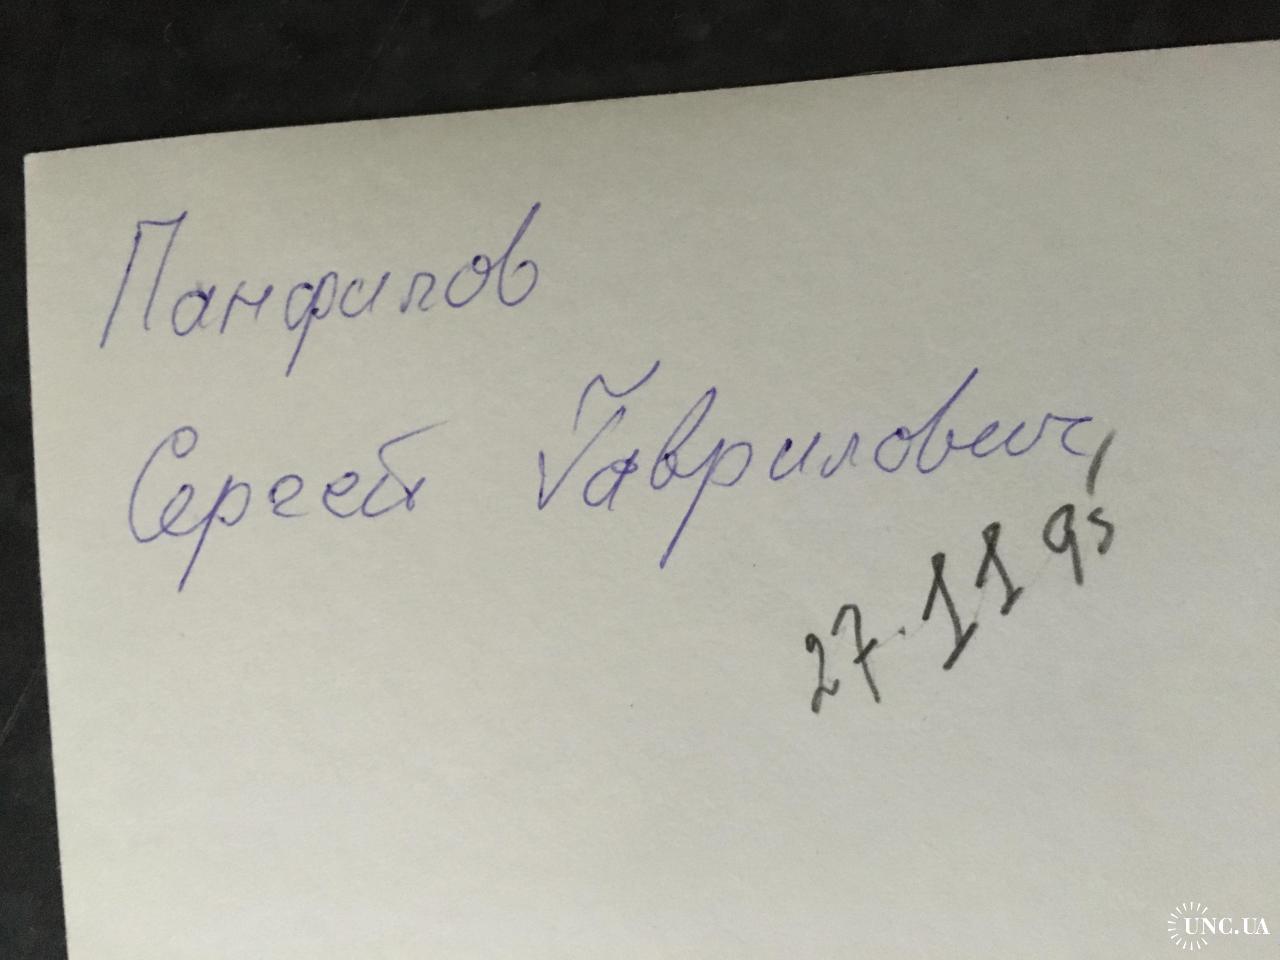 Панфилов
Сергей Гаврилович,
27.11 95
UNC.UA